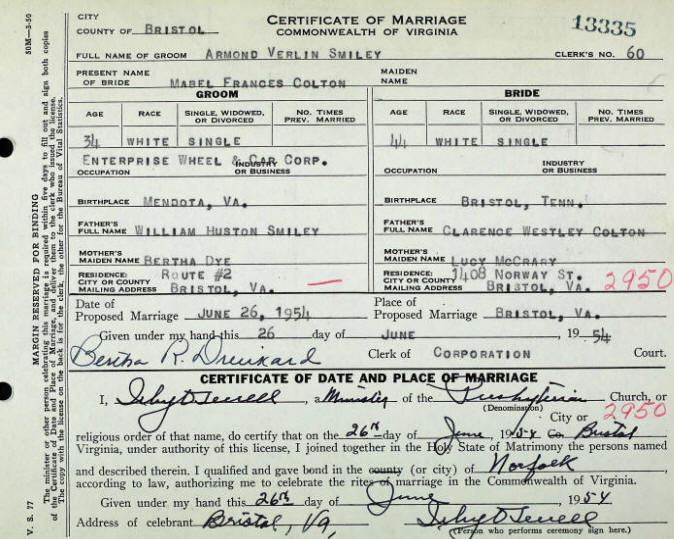 CITY
COUNTY OF BRISTOL
CERTIFICATE OF MARRIAGE
COMMONWEALTH OF VIRGINIA
13335
FULL NAME OF GROOM ARMOND VERLIN SMILEY CLERK'S NO. 60
PRESENT NAME OF BRIDE MABEL FRANCES COLTON MAIDEN NAME
GROOM BRIDE
AGE RACE SINGLE, WIDOWED, OR DIVORCED NO. TIMES PREV. MARRIED AGE RACE SINGLE, WIDOWED, OR DIVORCED NO. TIMES PREV. MARRIED
34 WHITE SINGLE 44 WHITE SINGLE
ENTERPRISE WHEEL & CAR CORP.
OCCUPATION INDUSTRY OR BUSINESS OCCUPATION INDUSTRY OR BUSINESS
BIRTHPLACE MENDOTA, VA. BIRTHPLACE BRISTOL, TENN.
FATHER'S FULL NAME WILLIAM HUSTON SMILEY FATHER'S FULL NAME CLARENCE WESTLEY COLTON
MOTHER'S MAIDEN NAME BERTHA DYE MOTHER'S MAIDEN NAME LUCY MCCRARY
RESIDENCE: CITY OR COUNTY MAILING ADDRESS ROUTE #2 BRISTOL, VA. — RESIDENCE: CITY OR COUNTY MAILING ADDRESS 1408 NORWAY ST. BRISTOL, VA. 2950
Date of Proposed Marriage JUNE 26, 1954 Place of Proposed Marriage BRISTOL, VA.
Given under my hand this 26 day of JUNE 1954
Bertha R. Clerk of CORPORATION Court.
CERTIFICATE OF DATE AND PLACE OF MARRIAGE
I, a Minister of the Presbyterian Church, or
(Denomination)
City or 2950
religious order of that name, do certify that on the 26th day of June, 1954 Co. Bristol
Virginia, under authority of this license, I joined together in the Holy State of Matrimony the persons named
and described therein. I qualified and gave bond in the county (or city) of Norfolk
according to law, authorizing me to celebrate the rites of marriage in the Commonwealth of Virginia.
Given under my hand this 26th day of June 1954
Address of celebrant Bristol, Va,
(Person who performs ceremony sign here.)
50M—3-50
V. S. 77
MARGIN RESERVED FOR BINDING
The minister or other person celebrating this marriage is required within five days to fill out and sign both copies
of the Certificate of Date and Place of Marriage, and deliver them to the clerk who issued the license.
The copy with the license on the back is for the clerk, the other for the Bureau of Vital Statistics.